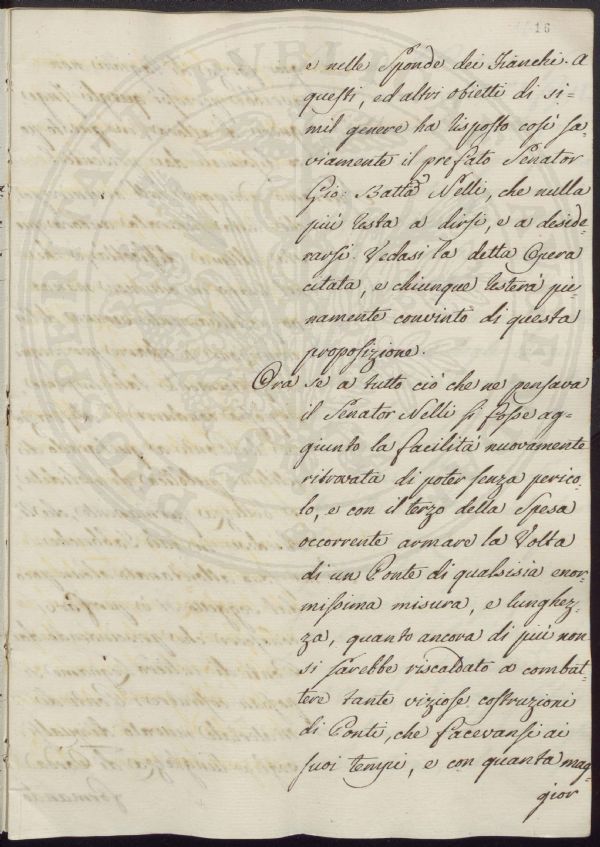 16
e nelle Sponde dei Fianchi. A
questi, ed altri obietti di si=
mil genere ha risposto così sa=
viamente il prefato Senator
Gio: Batta Nelli, che nulla
più resta a dirsi, e a deside=
rarsi. Vedasi la detta Opera
citata, e chiunque resterà pie=
namente convinto di questa
proposizione.
Ora se a tutto ciò che ne pensava
il Senator Nelli si fosse ag=
giunto la facilità nuovamente
ritrovata di poter senza perico=
lo, e con il terzo della Spesa
occorrente armare la Volta
di un Ponte di qualsisia enor=
missima misura, e lunghez=
za, quanto ancora di più non
si sarebbe riscaldato a combat=
tere tante viziose costruzioni
di Ponti, che facevansi ai
suoi tempi, e con quanta mag=
gior